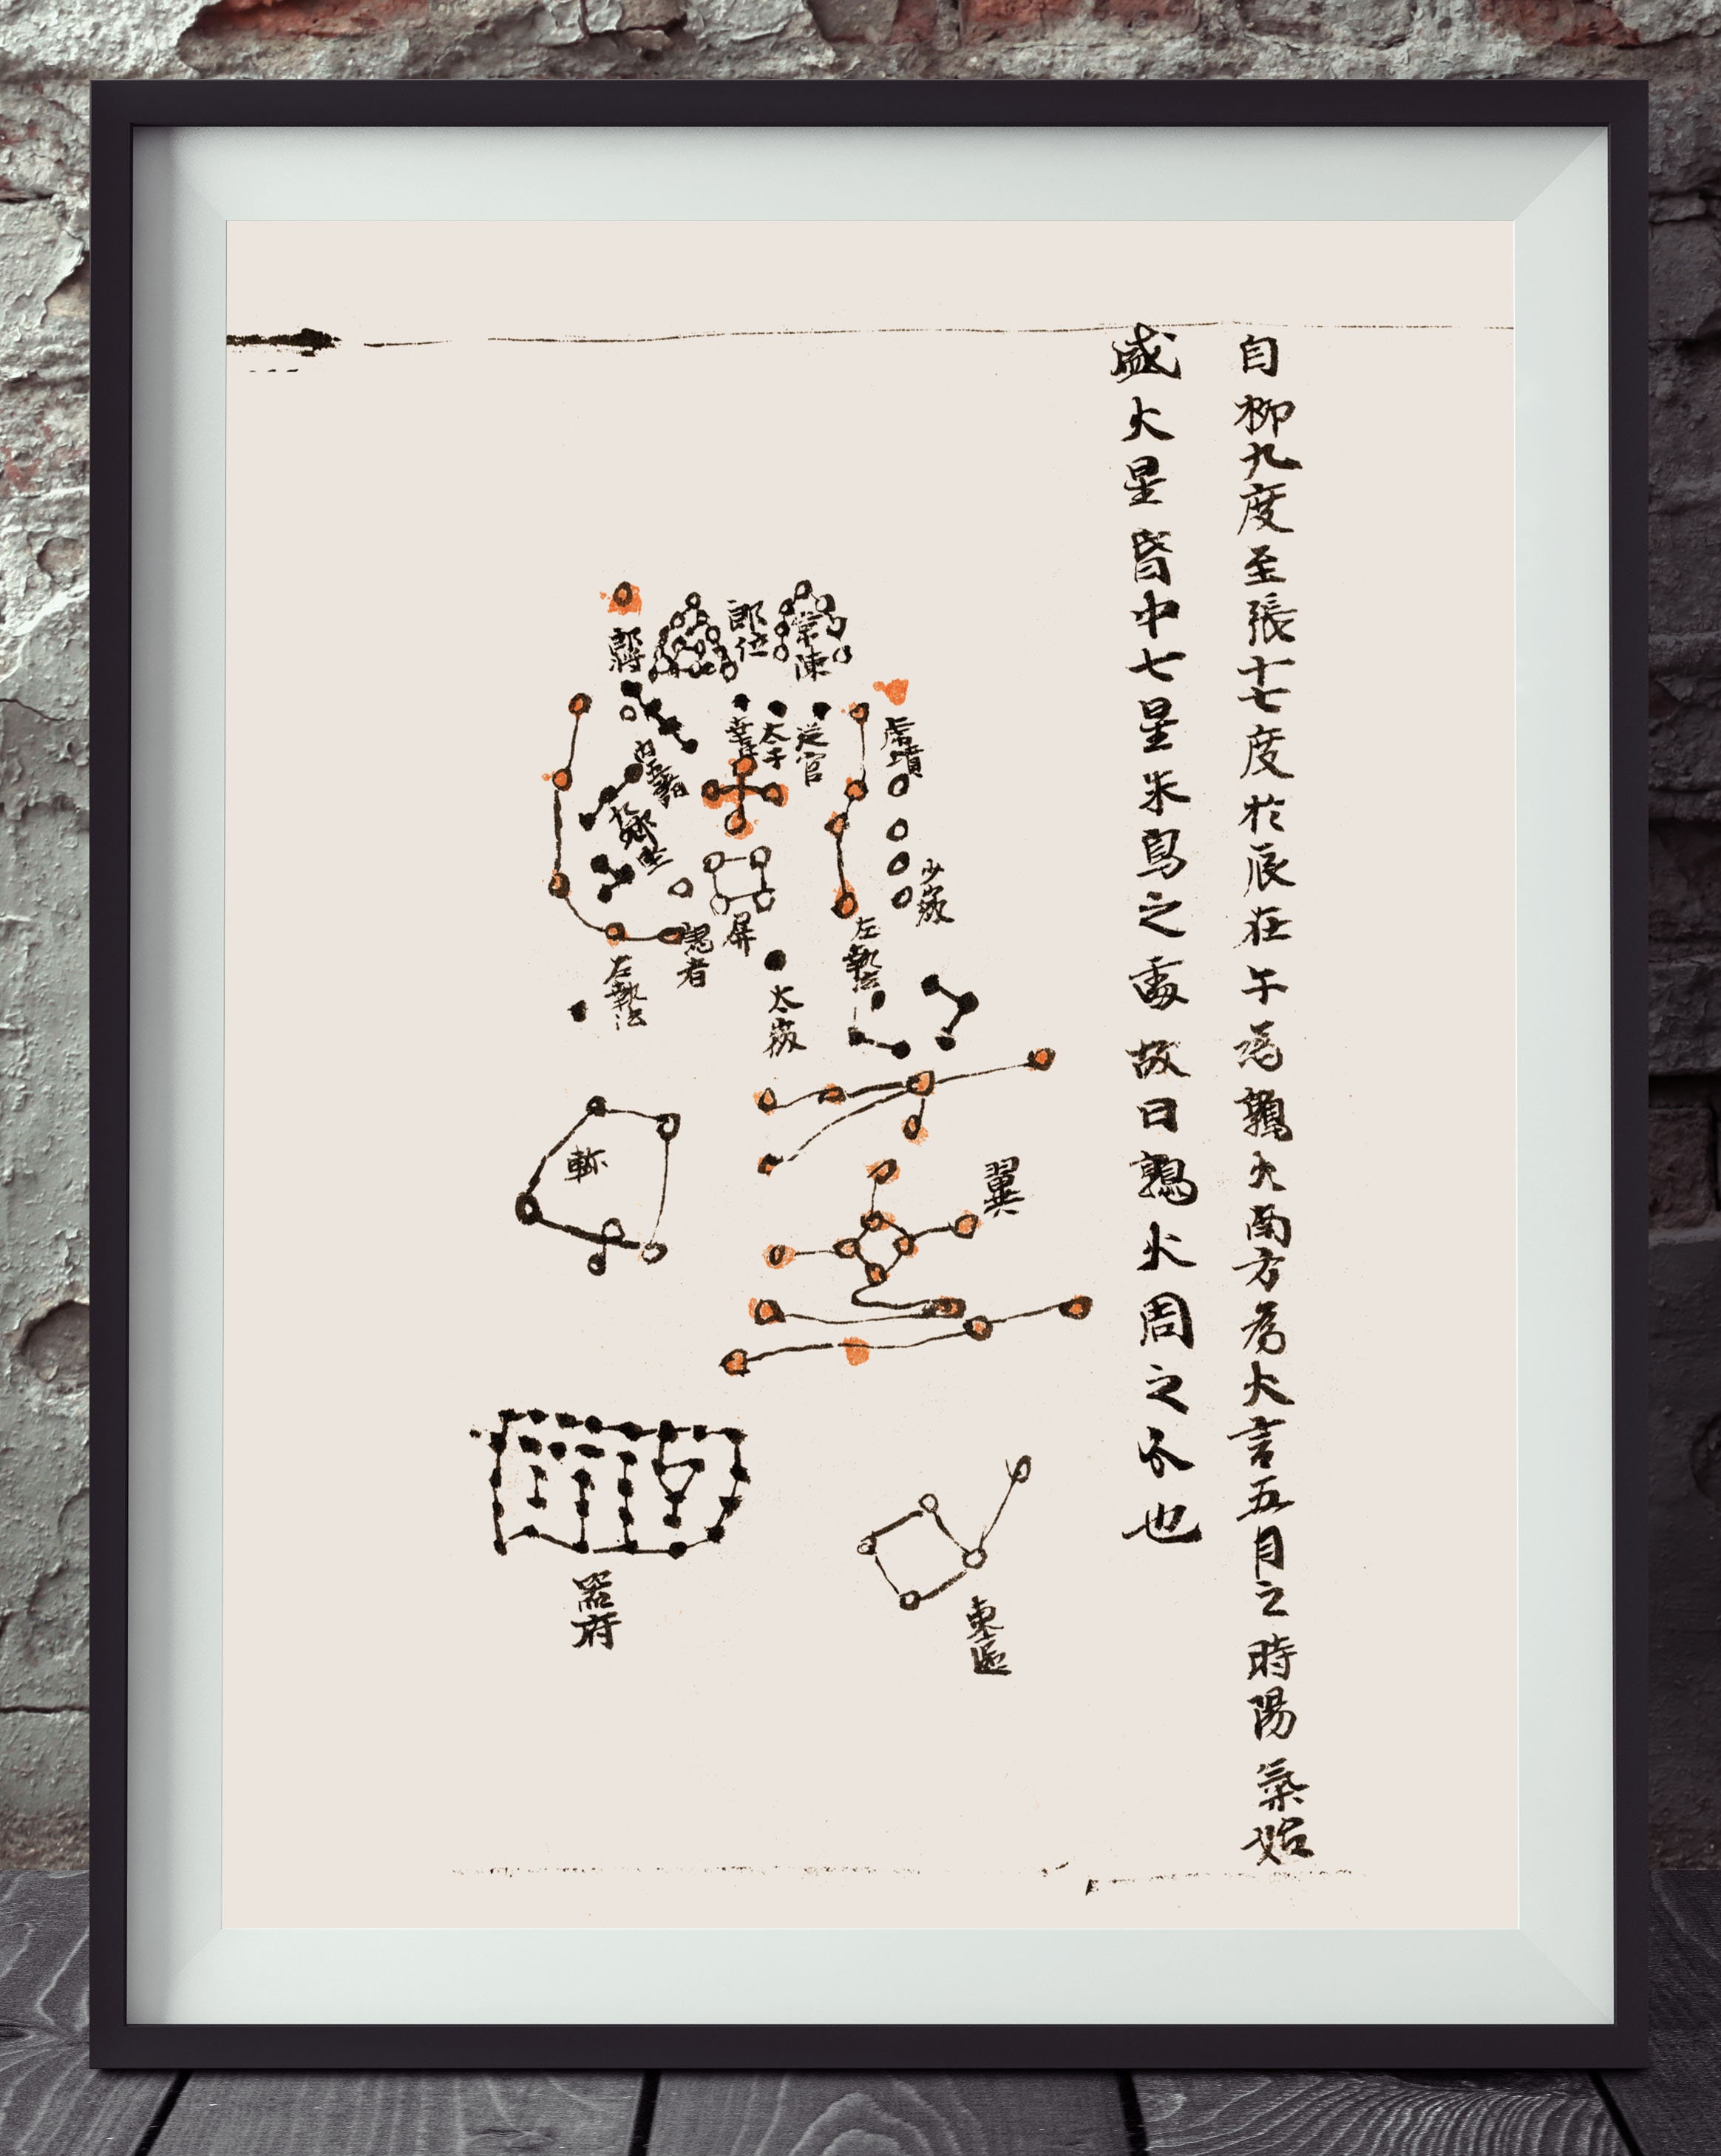 自柳九度至張十七度於辰在午為鶉火南方為火言五月之時陽氣始
盛火星昏中七星朱鳥之處故曰鶉火周之分也
郎將
郎位
常陳
幸臣
太子
從官
虎賁
少微
屏
謁者
左執法
右執法
太微
翼
軫
器府
東甌